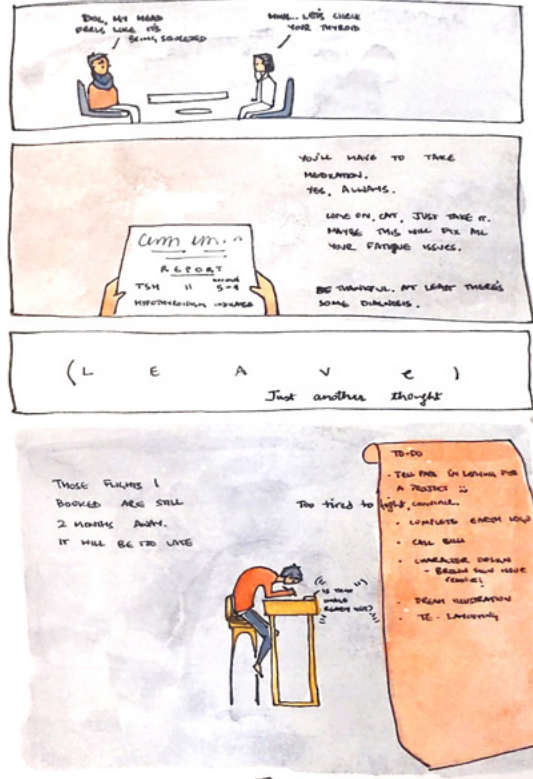 DOC, MY HEAD
FEELS LIKE IT'S
BEING SQUEEZED
HMM.. LET'S CHECK
YOUR THYROID
YOU'LL HAVE TO TAKE
MEDICATION.
YES, ALWAYS.
COME ON, CAT, JUST TAKE IT.
MAYBE THIS WILL FIX ALL
YOUR FATIGUE ISSUES.
BE THANKFUL. AT LEAST THERE'S
SOME DIAGNOSIS.
REPORT
normal
TSH 11 5-4
HYPOTHYROIDISM INDICATED
(L E A V e)
Just another thought
THOSE FLIGHTS I
BOOKED ARE STILL
2 MONTHS AWAY.
IT WILL BE TOO LATE
Too tired to fight,
IS THAT
IMAGE
READY YET?
TO-DO
- TELL I'M LEAVING FOR
A PROJECT
- COMPLETE EARTH LOGO
- CALL BILL
- CHARACTER DESIGN
- BROWN SKIN ISSUE
- DREAM ILLUSTRATION
- TE - LAYOUTING